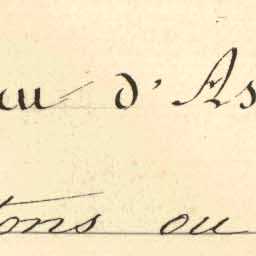 au d'As
tons ou